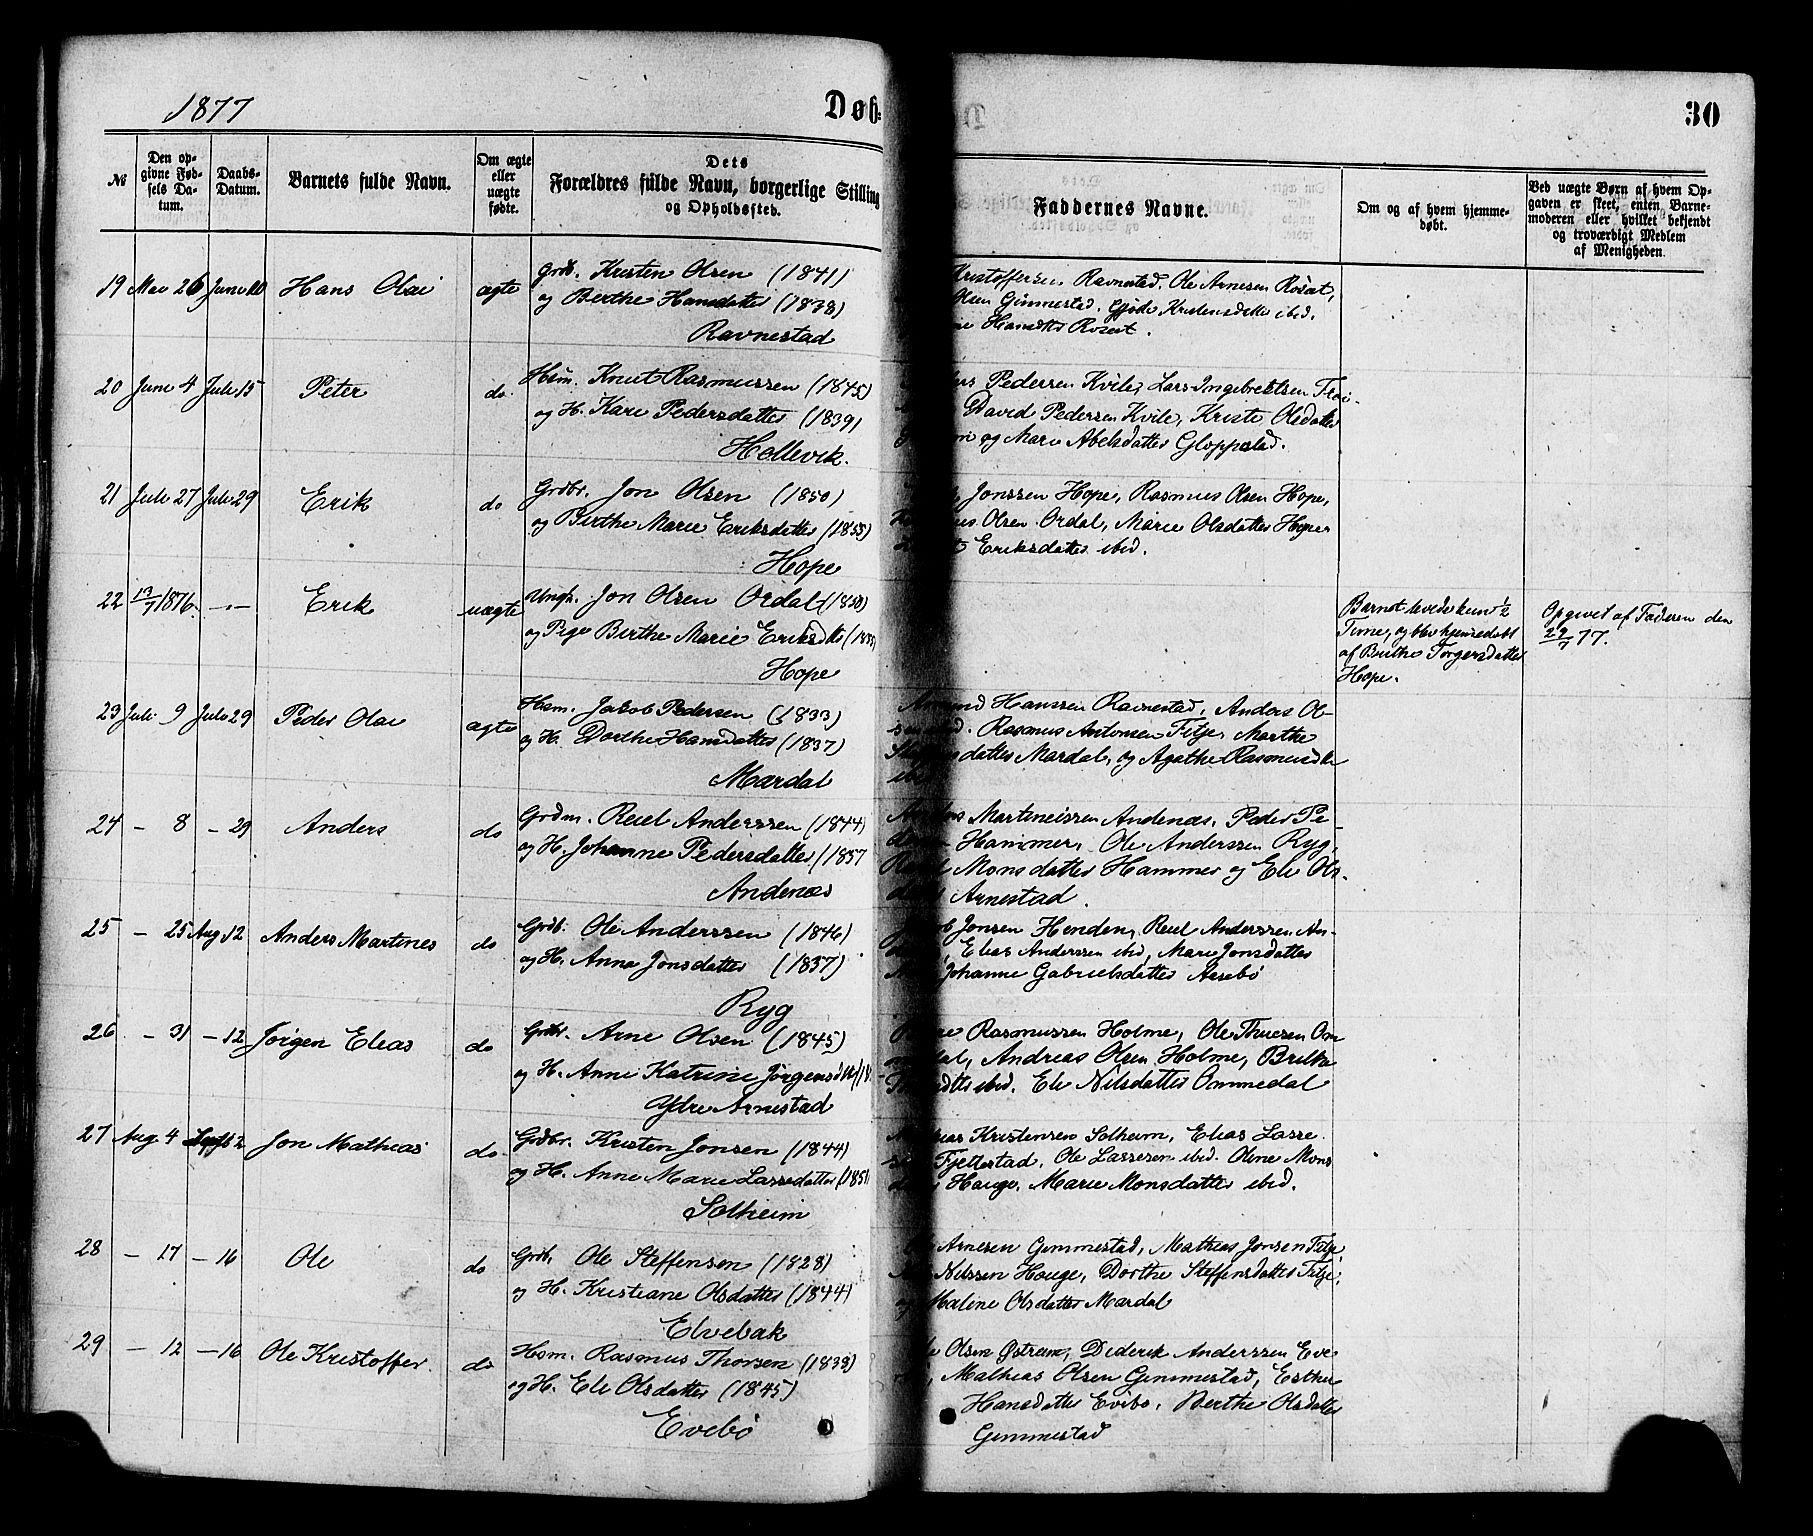 1877
Døb-
30
№
Den opgivne Fødsels Datum.
Daabs-Datum.
Barnets fulde Navn.
Om ægte eller uægte fødte.
Dets Forældres fulde Navn, borgerlige Stilling og Opholdssted.
Faddernes Navne.
Om og af hvem hjemmedøbt.
Ved uægte Børn af hvem Opgaven er skeet, enten Barnemoderen eller hvilket bekjendt og troværdigt Medlem af Menigheden.
19 Mai 26 Juni 10 Hans Olai ægte Grdb. Kristen Olsen (1841)
og Berthe Hansdatter (1838)
Ravnestad
Kristoffersen Ravnestad. Ole Arnesen
Olsen Gimmestad. Kristensdatter ibid.
Hansdtr
20 Juni 4 Juli 15 Peter do. Hsm. Knut Rasmussen (1845)
og H. Kari Pedersdatter (1839)
Hellevik.
Pedersen Kvile, Lars Ingebretsen
David Pedersen Kvile, Kristi Olsdatter
og Marie Abelsdatter Gloppestad.
21 Juli 27 Juli 29 Erik do Grdbr. Jon Olsen (1850)
og Berthe Marie Eriksdatter (1855)
Hope
Jonssen Hope, Rasmus Olsen Hope,
Olsen Ordal, Marie Olsdatter Hope
Eriksdatter ibid.
22 13/7 1876. -"- Erik uægte Ungk. Jon Olsen Ordal (1850)
og Pige Berthe Marie Eriksdtr
Hope
Barnet levede kun 1/2
Time, og blev hjemmedøbt
af Berthe Torgersdatter
Hope.
Opgivet af Faderen den
29/7 77.
23 Juli 9 Juli 29 Peder Olai ægte Hsm. Jakob Pedersen (1833)
og H. Dorthe Hansdatter (1837)
Mardal
Hanssen Ravnestad, Anders Ol-
Rasmus Antonsen Fitje, Marthe
datter Mardal, og Agathe Rasmusdtr
ibid
24 - 8 - 29 Anders do Grdm. Reiel Anderssen (1844)
og H. Johanne Pedersdatter (1837
Andenæs
Martineissen Andenæs, Peder Pe-
Hammer, Ole Anderssen Ryg,
Monsdatter Hammer og Eli Ols-
Arnestad.
25 - 25 Aug 12 Anders Martines do Grdb. Ole Anderssen (1846)
og H. Anna Jonsdatter (1837)
Ryg
Jonsen Henden, Reiel Anderssen An-
Elias Anderssen ibid, Marie Jonsdatter
Johanne Gabrielsdatter Aasebø
26 - 31 - 12 Jørgen Elias do Grdbr. Arne Olsen (1845)
og H. Anne Katrine Jørgensdtr
Ydre Arnestad
Rasmussen Holme, Ole Thuesen Om
Andreas Olsen Holme, Brithe
ibid. Eli Nilsdatter Ommedal
27 Aug 4 Septb 2 Jon Mathias do. Grdbr. Kristen Jonsen (1844)
og H. Anne Marie Lassedatter (1851)
Solheim
Kristensen Solheim, Elias Lasse
Fjellestad, Ole Lassesen ibid. Oline Mons
Hauge, Marie Monsdatter ibid.
28 - 17 - 16 Ole do Grdb. Ole Steffensen (1828)
og H. Kristiane Olsdatter (1844)
Elvebak
Arnesen Gimmestad, Mathias Jonsen Fitje,
Nilssen Hauge, Dorthe Steffensdatter Fitje,
Malene Olsdatter Mardal
29 - 12 - 16 Ole Kristoffer. do Hsm. Rasmus Thorsen (1838)
og H. Eli Olsdatter (1845)
Evebø
Olsen Østrem, Diderik Anderssen Eve
Mathias Olsen Gimmestad, Esther
Hansdatter Evebø, Berthe Olsdatter
Gimmestad